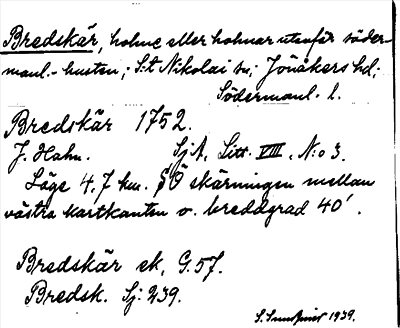 Bredskär, holme eller holmar utanför söder-
manl.-kusten; S:t Nikolai sn; Jönåkers hd;
Södermanl. l.
Bredskär 1752.
J. Hahn. SjA, Litt. VIII, N:o 3.
Läge 4,7 km. SO skärningen mellan
västra kartkanten o. breddgrad 40'.
Bredskär ek, G. 57.
Bredsk. Sj: 239.
S. 1939.